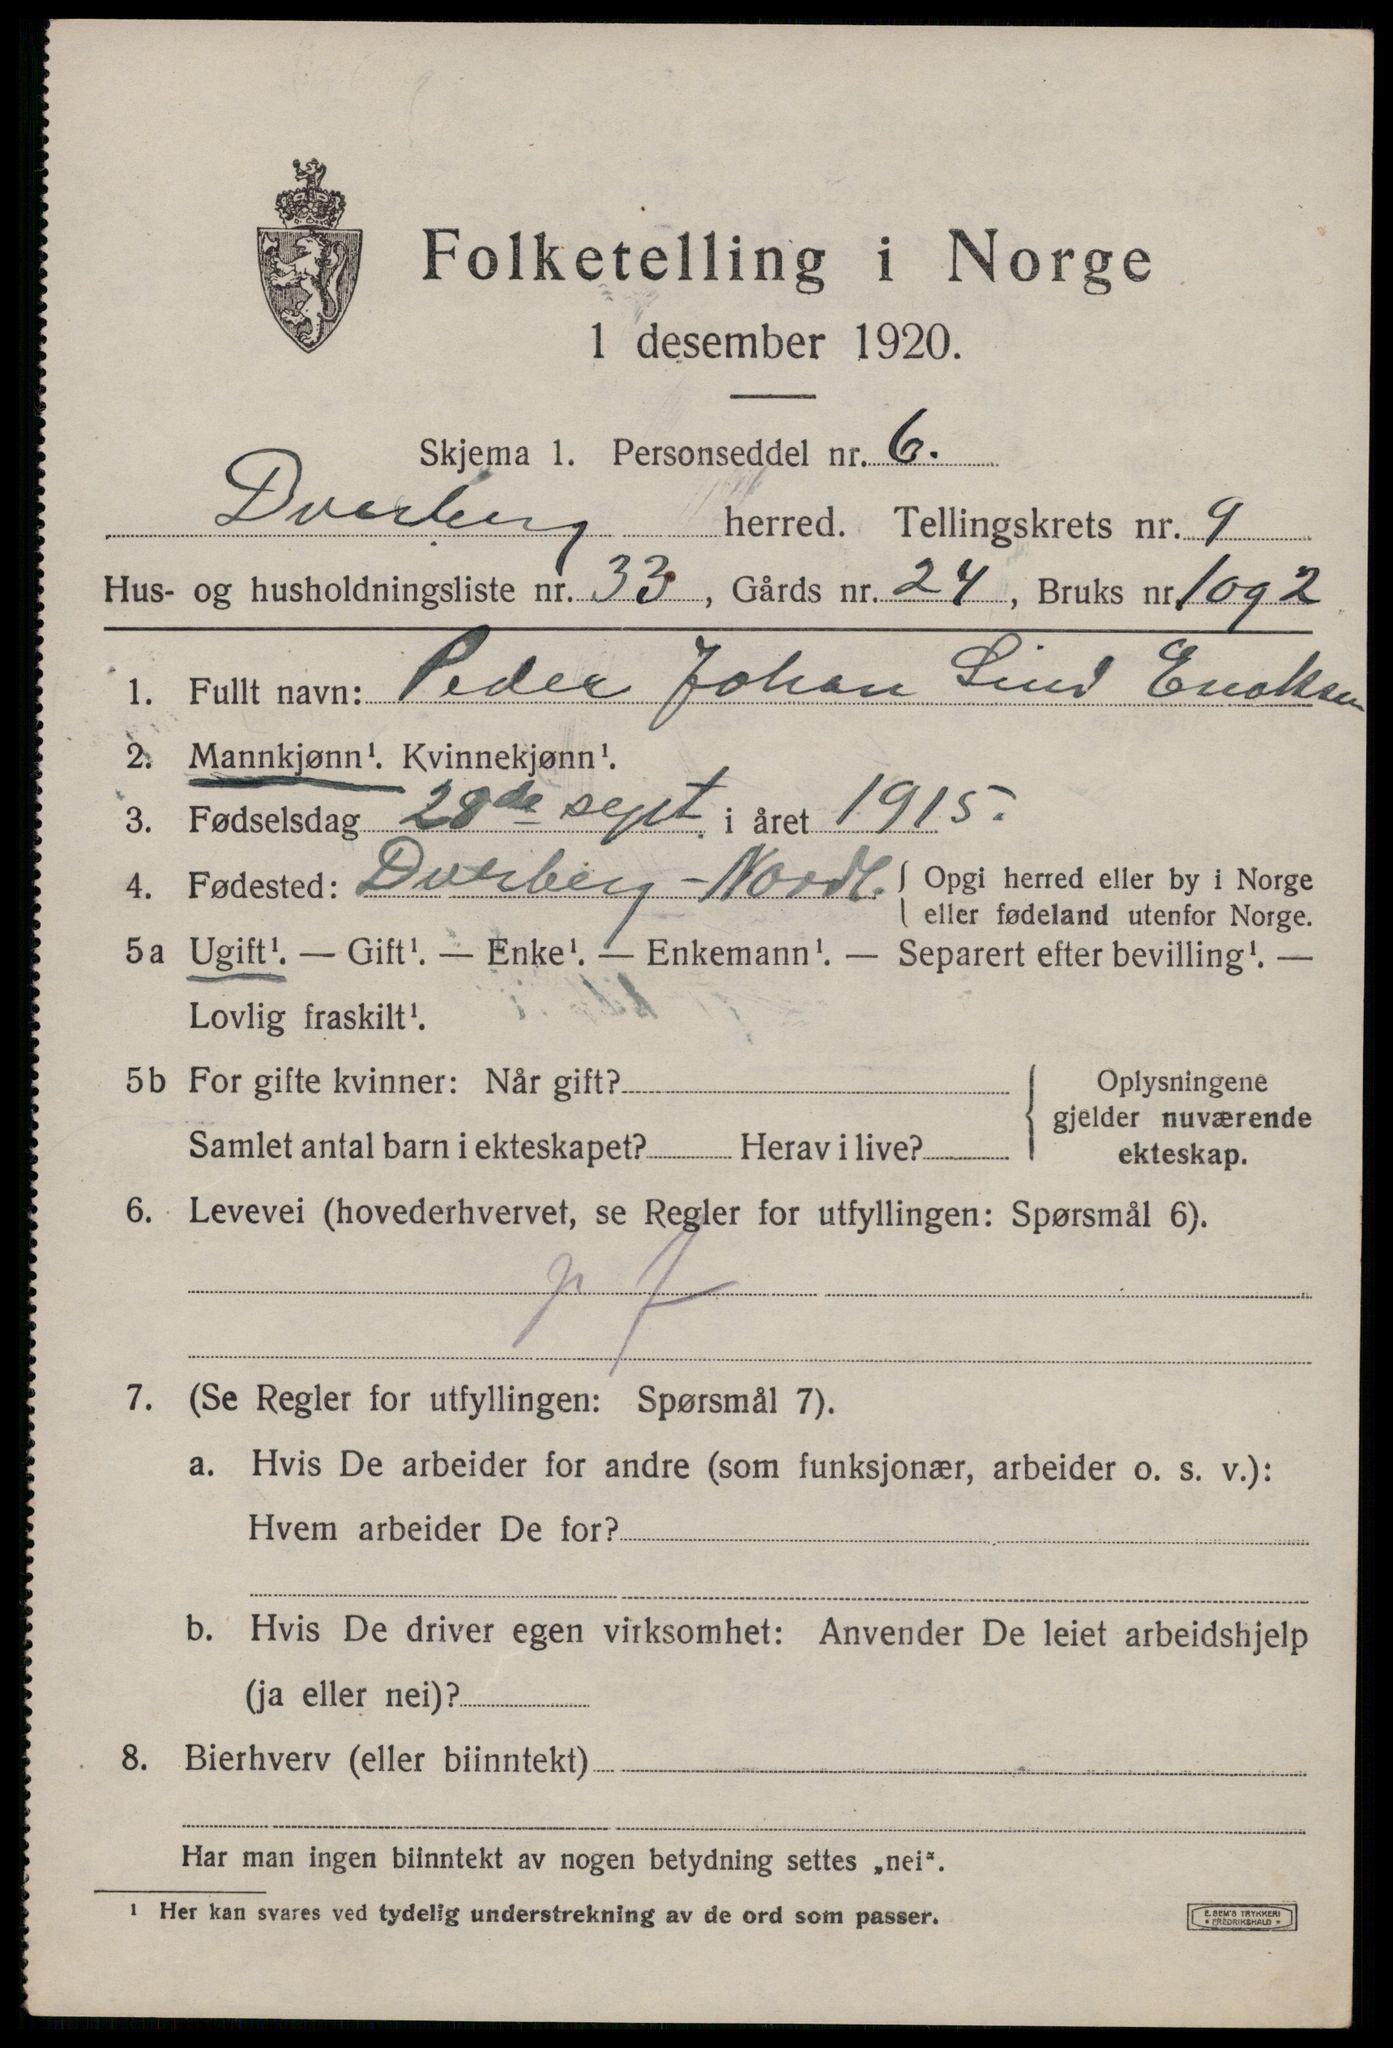 Folketelling i Norge
1 desember 1920.
Skjema 1. Personseddel nr. 6.
Dverberg herred. Tellingskrets nr. 9
Hus- og husholdningsliste nr. 33, Gårds nr. 24, Bruks nr. 1 og 2
1. Fullt navn: Peder Johan Lind Enoksen
2. Mannkjønn¹. Kvinnekjønn¹.
3. Fødselsdag 28de sept. i året 1915.
4. Fødested: Dverberg - Nordl. Opgi herred eller by i Norge
eller fødeland utenfor Norge.
5a Ugift¹. — Gift¹. — Enke¹. — Enkemann¹. — Separert efter bevilling¹. —
Lovlig fraskilt¹.
5b For gifte kvinner: Når gift?
Samlet antal barn i ekteskapet? Herav i live?
Oplysningene
gjelder nuværende
ekteskap.
6. Levevei (hovederhvervet, se Regler for utfyllingen: Spørsmål 6).
7. (Se Regler for utfyllingen: Spørsmål 7).
a. Hvis De arbeider for andre (som funksjonær, arbeider o. s. v.):
Hvem arbeider De for?
b. Hvis De driver egen virksomhet: Anvender De leiet arbeidshjelp
(ja eller nei)?
8. Bierhverv (eller biinntekt)
Har man ingen biinntekt av nogen betydning settes „nei".
¹ Her kan svares ved tydelig understrekning av de ord som passer.
E. SEM'S TRYKKERI
• FREDRIKSHALD •